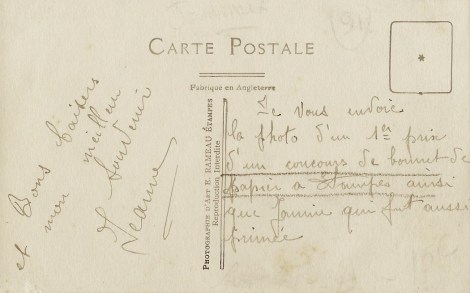 CARTE POSTALE
Fabriqué en Angleterre
PHOTOGRAPHIES D'ART E. RAMEAU ÉTAMPES
Reproduction Interdite
Je vous envoie
la photo d'un 1er prix
d'un concours de bonnet de
papier à Etampes ainsi
que Jannie qui fut aussi
primée
Bons baisers
et mon meilleur
souvenir
Jeanne